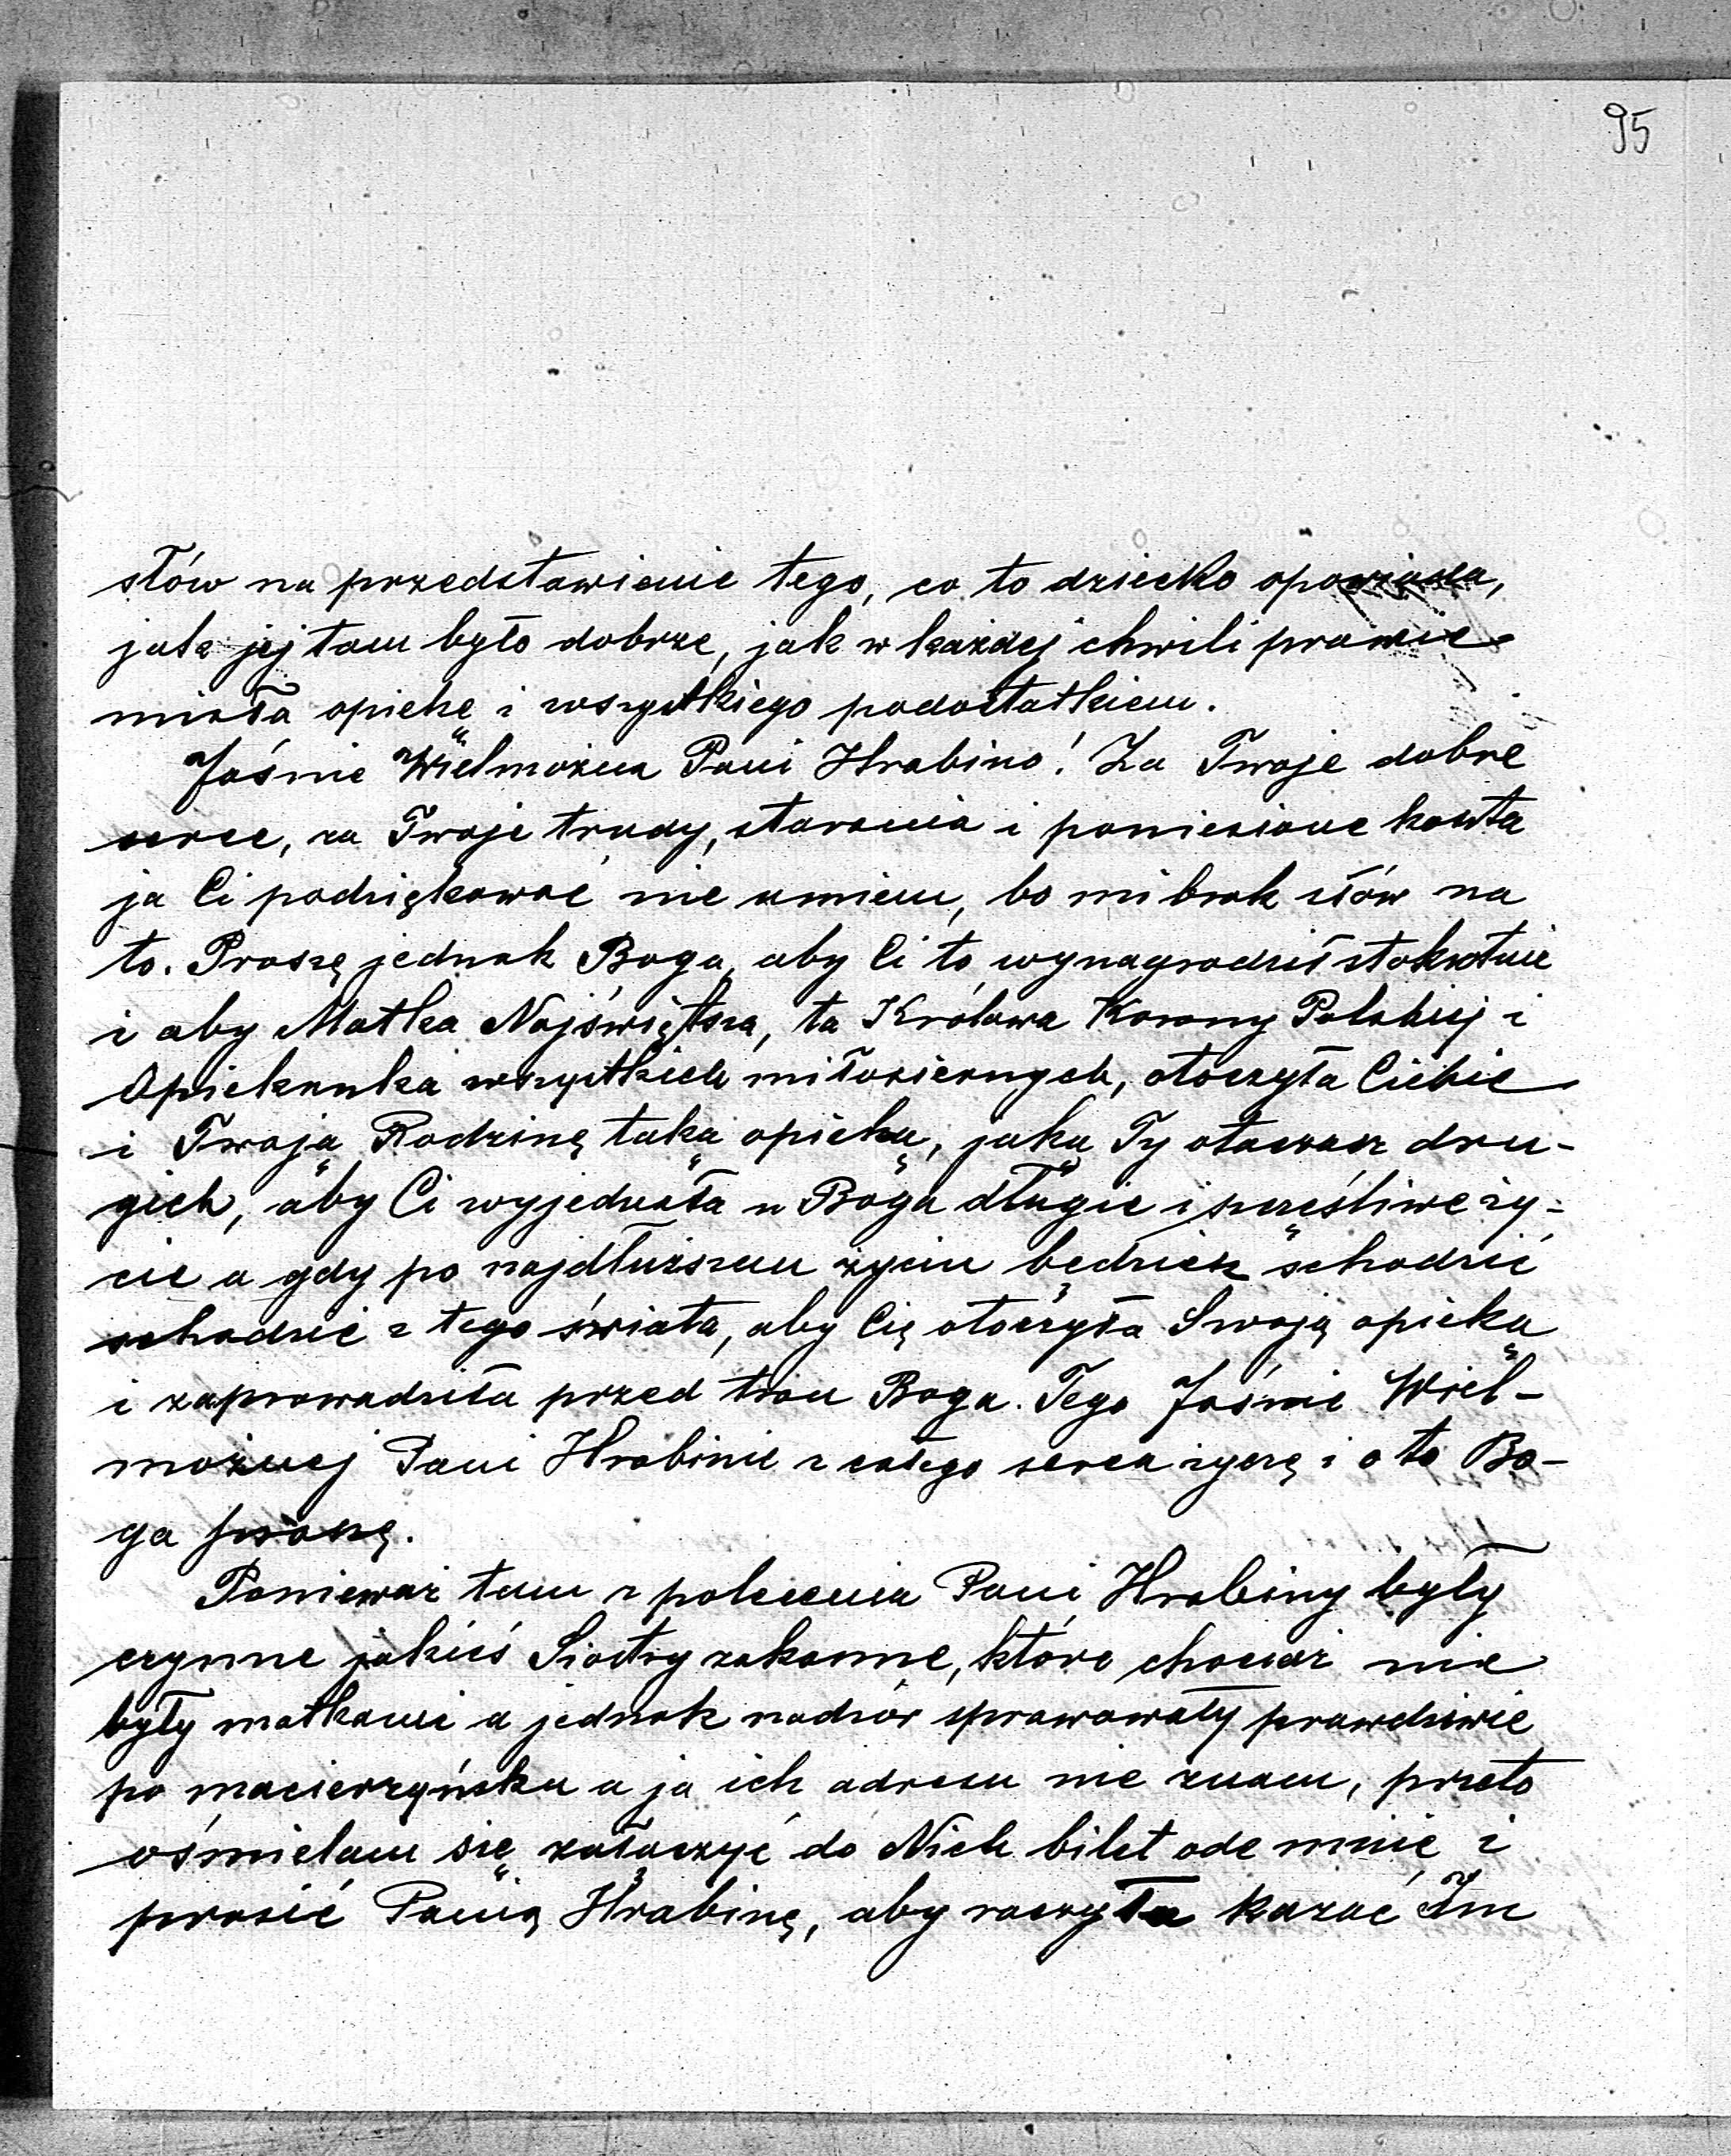 95
słów na przedstawienie tego, co to dziecko opowiada,
jak jej tam było dobrze, jak w każdej chwili prawie
miała opiekę i wszystkiego podostatkiem.
Jaśnie Wielmożna Pani Hrabino! Za Twoje dobre
serce, za Twoje trudy, starania i poniesione koszta
ja Ci podziękować nie umiem, bo mi brak słów na
to. Proszę jednak Boga, aby Ci to wynagrodził stokrotnie
i aby Matka Najświętsza, ta Królowa Korony Polskiej i
Opiekunka wszystkich miłosiernych, otoczyła Ciebie
i Twoją Rodzinę taką opieką, jaką Ty otaczasz dru-
gich, aby Ci wyjednała u Boga długie i szczęśliwe ży-
cie a gdy po najdłuższem życiu będziesz schodzić
schodzić z tego świata, aby Cię otoczyła Swoją opieką
i zaprowadziła przed tron Boga. Tego Jaśnie Wiel-
możnej Pani Hrabinie z całego serca życzę i o to Bo-
ga proszę.
Ponieważ tam z polecenia Pani Hrabiny były
czynne jakieś Siostry zakonne, które chociaż nie
były matkami a jednak nadzór sprawowały prawdziwie
po macierzyńsku a ja ich adresu nie znam, przeto
ośmielam się załączyć do Nich bilet ode mnie i
prosić Panią Hrabinę, aby raczyła kazać Im